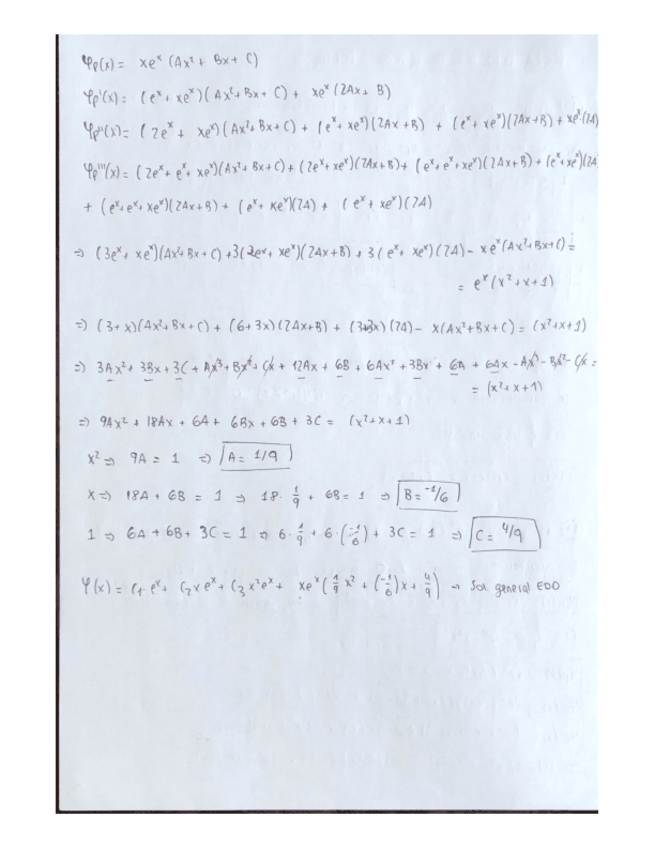 φp(x) = xeˣ (Ax² + Bx + C)
φp'(x) = (eˣ + xeˣ)(Ax² + Bx + C) + xeˣ (2Ax + B)
φp''(x) = (2eˣ + xeˣ)(Ax² + Bx + C) + (eˣ + xeˣ)(2Ax + B) + (eˣ + xeˣ)(2Ax + B) + xeˣ(2A)
φp'''(x) = (2eˣ + eˣ + xeˣ)(Ax² + Bx + C) + (2eˣ + xeˣ)(2Ax + B) + (eˣ + eˣ + xeˣ)(2Ax + B) + (eˣ + xeˣ)(2A
+ (eˣ + eˣ + xeˣ)(2Ax + B) + (eˣ + xeˣ)(2A) + (eˣ + xeˣ)(2A)
⇒ (3eˣ + xeˣ)(Ax² + Bx + C) + 3(2eˣ + xeˣ)(2Ax + B) + 3(eˣ + xeˣ)(2A) - xeˣ(Ax² + Bx + C) =
= eˣ (x² + x + 1)
⇒ (3 + x)(Ax² + Bx + C) + (6 + 3x)(2Ax + B) + (3+3x)(2A) - x(Ax² + Bx + C) = (x² + x + 1)
⇒ 3Ax² + 3Bx + 3C + Ax³ + Bx² + Cx + 12Ax + 6B + 6Ax² + 3Bx + 6A + 6Ax - Ax³ - Bx² - Cx =
= (x² + x + 1)
⇒ 9Ax² + 18Ax + 6A + 6Bx + 6B + 3C = (x² + x + 1)
x² ⇒ 9A = 1 ⇒ A = 1/9
x ⇒ 18A + 6B = 1 ⇒ 18 · 1/9 + 6B = 1 ⇒ B = -1/6
1 ⇒ 6A + 6B + 3C = 1 ⇒ 6 · 1/9 + 6 · (-1/6) + 3C = 1 ⇒ C = 4/9
φ(x) = C1 · eˣ + C2 x eˣ + C3 x² eˣ + xeˣ (1/9 x² + (-1/6)x + 4/9) → Sol. general EDO